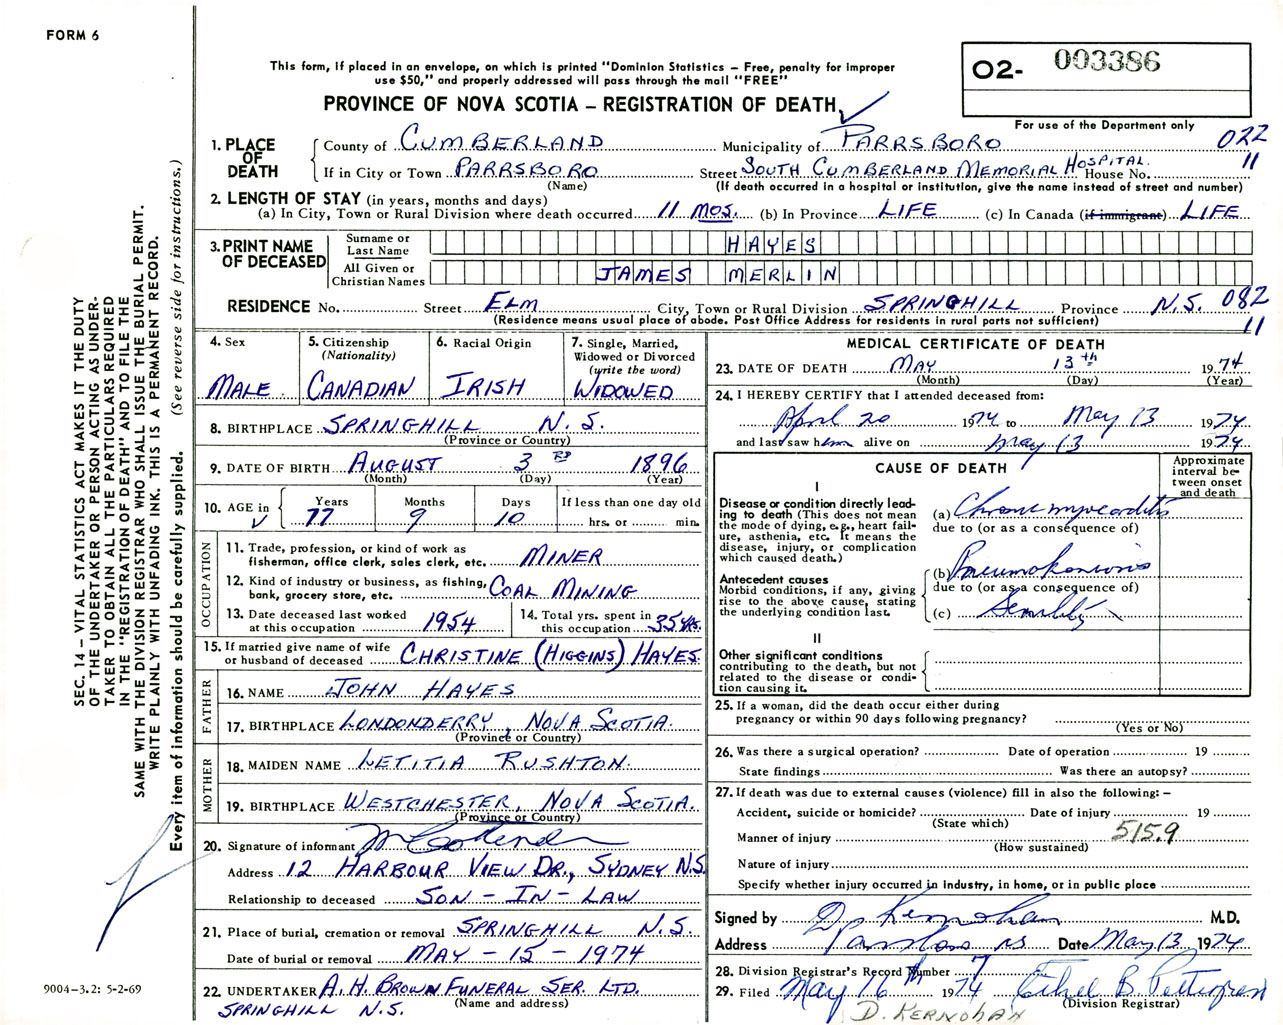 FORM 6
This form, if placed in an envelope, on which is printed "Dominion Statistics – Free, penalty for improper
use $50," and properly addressed will pass through the mail "FREE"
PROVINCE OF NOVA SCOTIA – REGISTRATION OF DEATH
O2- 003386
For use of the Department only
022
11
1. PLACE OF DEATH
County of CUMBERLAND Municipality of PARRSBORO
If in City or Town PARRSBORO Street SOUTH CUMBERLAND MEMORIAL HOSPITAL House No.
(Name) (If death occurred in a hospital or institution, give the name instead of street and number)
2. LENGTH OF STAY (in years, months and days)
(a) In City, Town or Rural Division where death occurred 11 MOS. (b) In Province LIFE (c) In Canada (if immigrant) LIFE
3. PRINT NAME OF DECEASED
Surname or Last Name HAYES
All Given or Christian Names JAMES MERLIN
RESIDENCE No. Street ELM City, Town or Rural Division SPRINGHILL Province N.S. 082
11
(Residence means usual place of abode. Post Office Address for residents in rural parts not sufficient)
4. Sex
MALE
5. Citizenship
(Nationality)
CANADIAN
6. Racial Origin
IRISH
7. Single, Married,
Widowed or Divorced
(write the word)
WIDOWED
8. BIRTHPLACE SPRINGHILL N.S.
(Province or Country)
9. DATE OF BIRTH AUGUST 3RD 1896
(Month) (Day) (Year)
10. AGE in
Years 77 Months 9 Days 10 If less than one day old
hrs. or min.
OCCUPATION
11. Trade, profession, or kind of work as
fisherman, office clerk, sales clerk, etc. MINER
12. Kind of industry or business, as fishing,
bank, grocery store, etc. COAL MINING
13. Date deceased last worked
at this occupation 1954
14. Total yrs. spent in
this occupation 35 YRS.
15. If married give name of wife
or husband of deceased CHRISTINE (HIGGINS) HAYES
FATHER
16. NAME JOHN HAYES
17. BIRTHPLACE LONDONDERRY, NOVA SCOTIA.
(Province or Country)
MOTHER
18. MAIDEN NAME LETITIA RUSHTON.
19. BIRTHPLACE WESTCHESTER, NOVA SCOTIA.
(Province or Country)
20. Signature of informant
Address 12 HARBOUR VIEW DR., SYDNEY N.S.
Relationship to deceased SON-IN-LAW
21. Place of burial, cremation or removal SPRINGHILL N.S.
Date of burial or removal MAY-15-1974
22. UNDERTAKER A.H. BROWN FUNERAL SER. LTD.
(Name and address)
SPRINGHILL N.S.
MEDICAL CERTIFICATE OF DEATH
23. DATE OF DEATH MAY 13th 1974
(Month) (Day) (Year)
24. I HEREBY CERTIFY that I attended deceased from:
April 20 1974 to May 13 1974
and last saw him alive on May 13 1974
CAUSE OF DEATH
Approximate
interval be-
tween onset
and death
I
Disease or condition directly lead-
ing to death (This does not mean
the mode of dying, e.g., heart fail-
ure, asthenia, etc. It means the
disease, injury, or complication
which caused death.)
(a) Chronic myocarditis
due to (or as a consequence of)
Antecedent causes
Morbid conditions, if any, giving
rise to the above cause, stating
the underlying condition last.
(b) Pneumokoniosis
due to (or as a consequence of)
(c) Senility
II
Other significant conditions
contributing to the death, but not
related to the disease or condi-
tion causing it.
25. If a woman, did the death occur either during
pregnancy or within 90 days following pregnancy?
(Yes or No)
26. Was there a surgical operation? Date of operation 19
State findings Was there an autopsy?
27. If death was due to external causes (violence) fill in also the following: –
Accident, suicide or homicide? Date of injury 19
(State which)
515.9
Manner of injury
(How sustained)
Nature of injury
Specify whether injury occurred in industry, in home, or in public place
Signed by D Kernohan M.D.
Address Parrsboro NS Date May 13 1974
28. Division Registrar's Record Number 7
29. Filed May 16th 1974 Ethel B.
(Division Registrar)
D. KERNOHAN
SEC. 14 – VITAL STATISTICS ACT MAKES IT THE DUTY
OF THE UNDERTAKER OR PERSON ACTING AS UNDER-
TAKER TO OBTAIN ALL THE PARTICULARS REQUIRED
IN THE "REGISTRATION OF DEATH" AND TO FILE THE
SAME WITH THE DIVISION REGISTRAR WHO SHALL ISSUE THE BURIAL PERMIT.
WRITE PLAINLY WITH UNFADING INK. THIS IS A PERMANENT RECORD.
Every item of information should be carefully supplied. (See reverse side for instructions.)
9004-3.2: 5-2-69